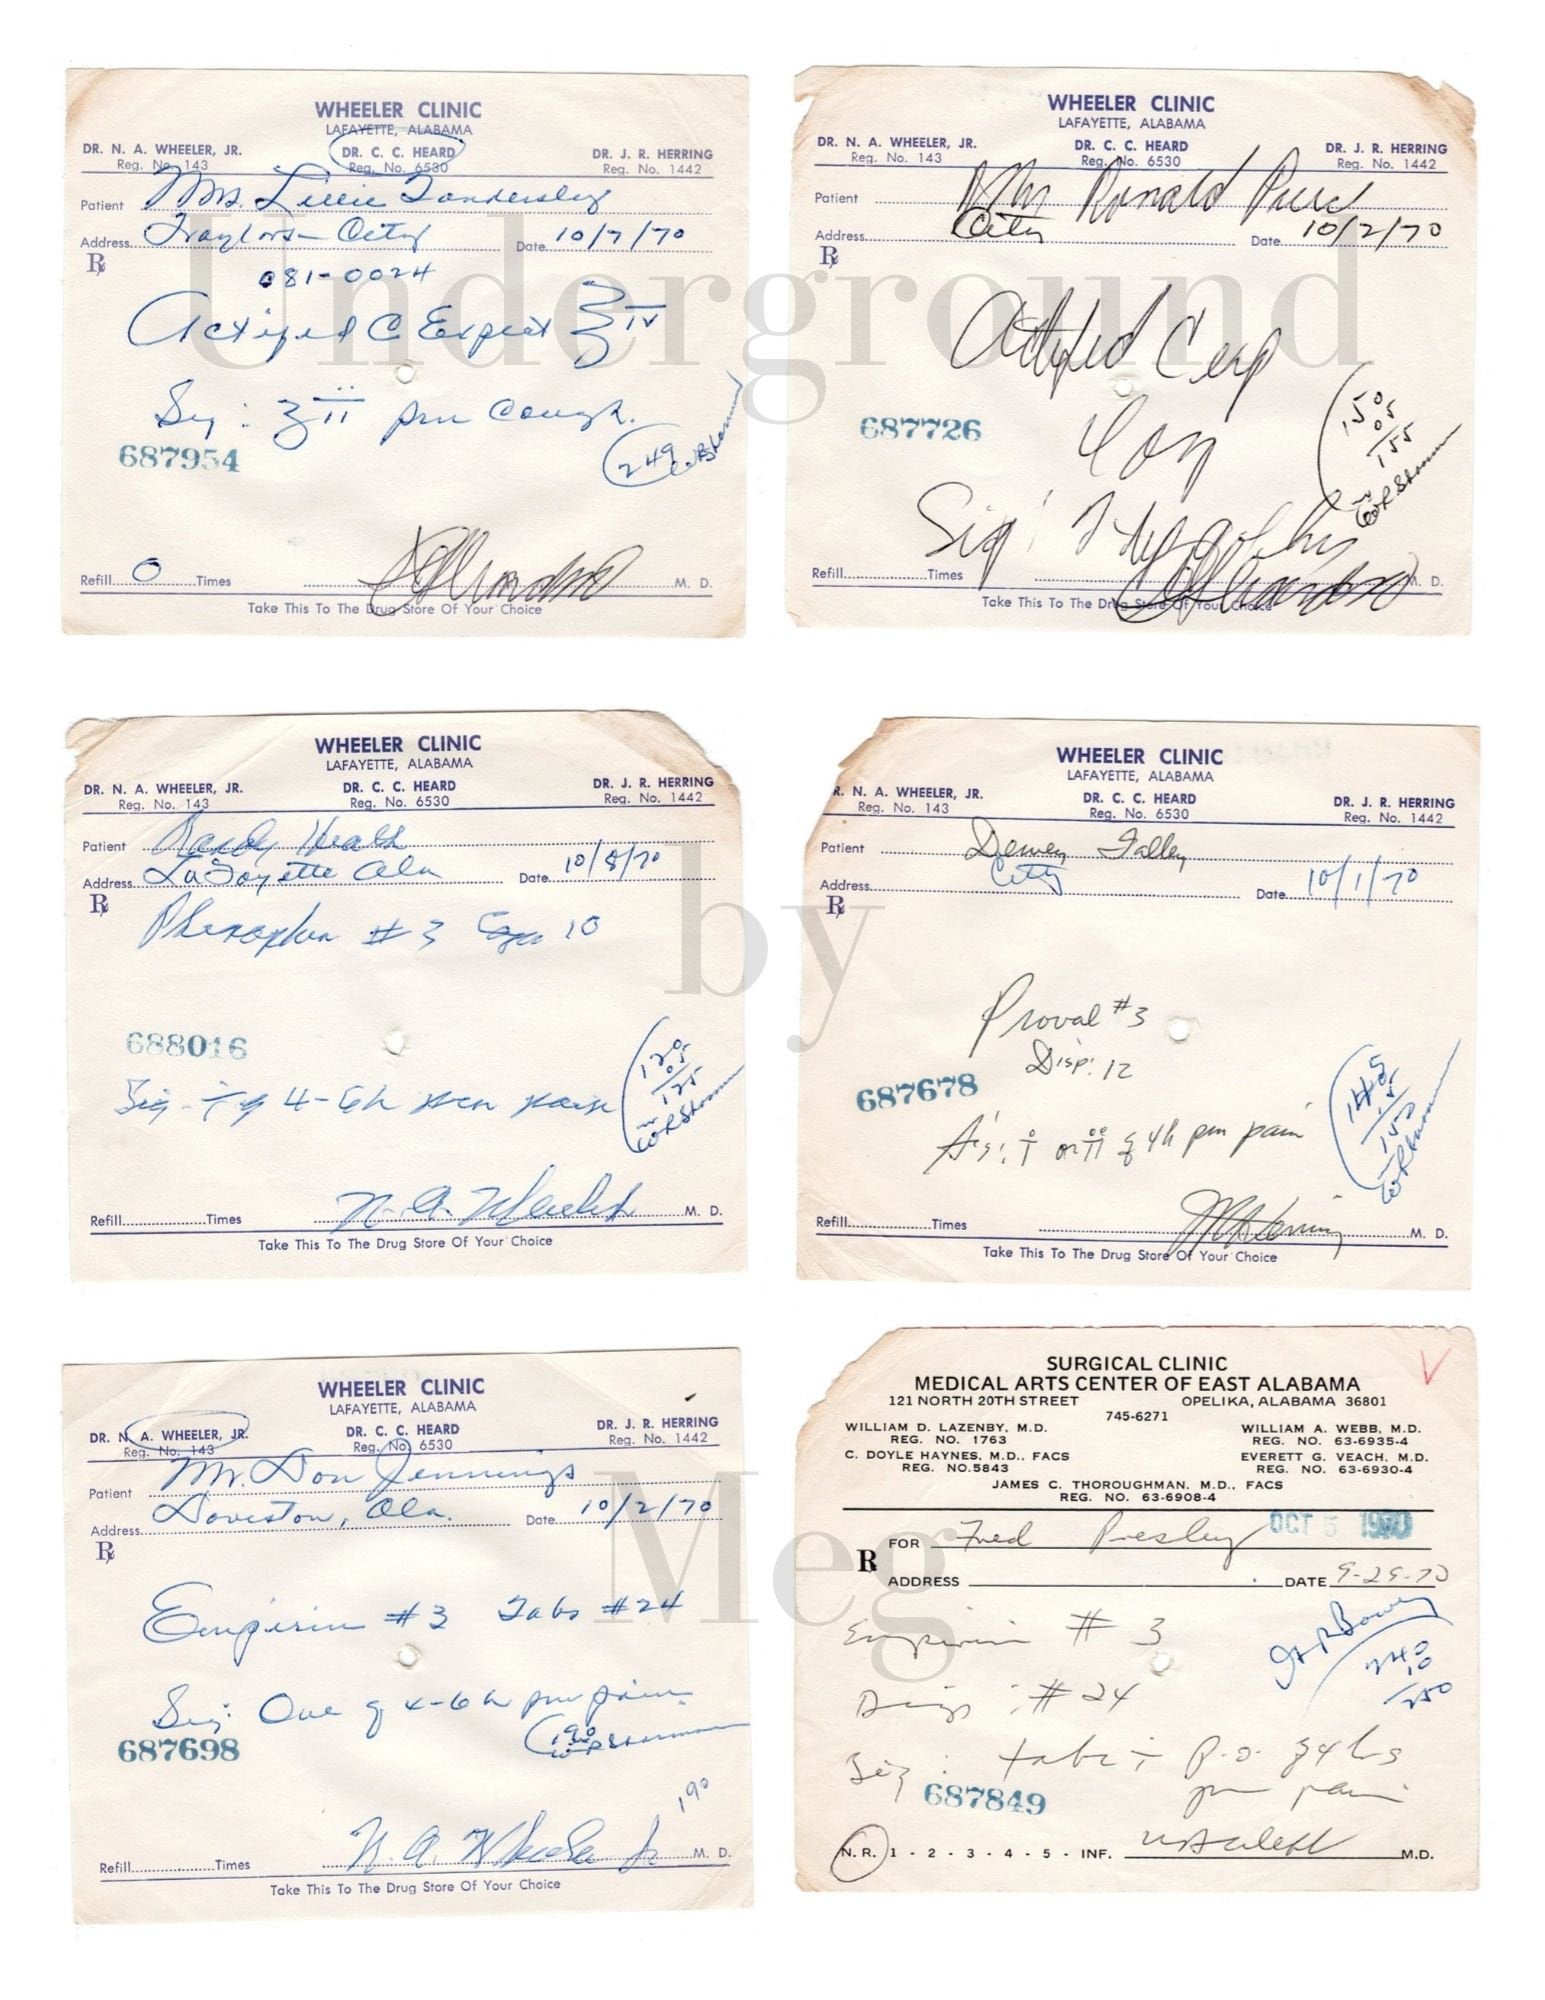 WHEELER CLINIC
LAFAYETTE, ALABAMA
DR. N. A. WHEELER, JR. DR. C. C. HEARD DR. J. R. HERRING
Reg. No. 143 Reg. No. 6530 Reg. No. 1442
Patient Mrs. Lillie
Address City Date 10/7/70
℞
081-0024
Actifed C Expect ʒ iv
Sig: ʒ ii prn cough.
687954
249
Refill 0 Times M. D.
Take This To The Drug Store Of Your Choice
WHEELER CLINIC
LAFAYETTE, ALABAMA
DR. N. A. WHEELER, JR. DR. C. C. HEARD DR. J. R. HERRING
Reg. No. 143 Reg. No. 6530 Reg. No. 1442
Patient Mr Ronald
Address City Date 10/2/70
℞
Actifed C exp
150
05
155
687726
Sig:
Refill Times M. D.
Take This To The Drug Store Of Your Choice
WHEELER CLINIC
LAFAYETTE, ALABAMA
DR. N. A. WHEELER, JR. DR. C. C. HEARD DR. J. R. HERRING
Reg. No. 143 Reg. No. 6530 Reg. No. 1442
Patient Randy Heath
Address LaFayette Ala Date 10/8/70
℞
Phenaphen #3 10
688016
120
05
125
Sig - 4-6h prn pain
N. A. Wheeler
Refill Times M. D.
Take This To The Drug Store Of Your Choice
WHEELER CLINIC
LAFAYETTE, ALABAMA
R. N. A. WHEELER, JR. DR. C. C. HEARD DR. J. R. HERRING
Reg. No. 143 Reg. No. 6530 Reg. No. 1442
Patient Dewey Talley
Address City Date 10/1/70
℞
Proval #3
Disp: 12
687678
Sig: i or ii q 4h prn pain
150
J R Herring
Refill Times M. D.
Take This To The Drug Store Of Your Choice
WHEELER CLINIC
LAFAYETTE, ALABAMA
DR. N. A. WHEELER, JR. DR. C. C. HEARD DR. J. R. HERRING
Reg. No. 143 Reg. No. 6530 Reg. No. 1442
Patient Mr. Don Jennings
Address Daviston, Ala. Date 10/2/70
℞
Empirin #3 Tabs #24
Sig: One q 4-6 h prn pain
190
687698
190
N. A. Wheeler Jr
Refill Times M. D.
Take This To The Drug Store Of Your Choice
SURGICAL CLINIC
MEDICAL ARTS CENTER OF EAST ALABAMA
121 NORTH 20TH STREET OPELIKA, ALABAMA 36801
745-6271
WILLIAM D. LAZENBY, M.D. WILLIAM A. WEBB, M.D.
REG. NO. 1763 REG. NO. 63-6935-4
C. DOYLE HAYNES, M.D., FACS EVERETT G. VEACH, M.D.
REG. NO. 5843 REG. NO. 63-6930-4
JAMES C. THOROUGHMAN, M.D., FACS
REG. NO. 63-6908-4
OCT 5 1970
℞ FOR Fred Presley
ADDRESS DATE 9-29-70
Empirin #3
240
10
250
Disp: #24
Sig: tabs i p.o. q4hs
prn pain
687849
N. R. 1 - 2 - 3 - 4 - 5 - INF. M.D.
Underground
by
Meg